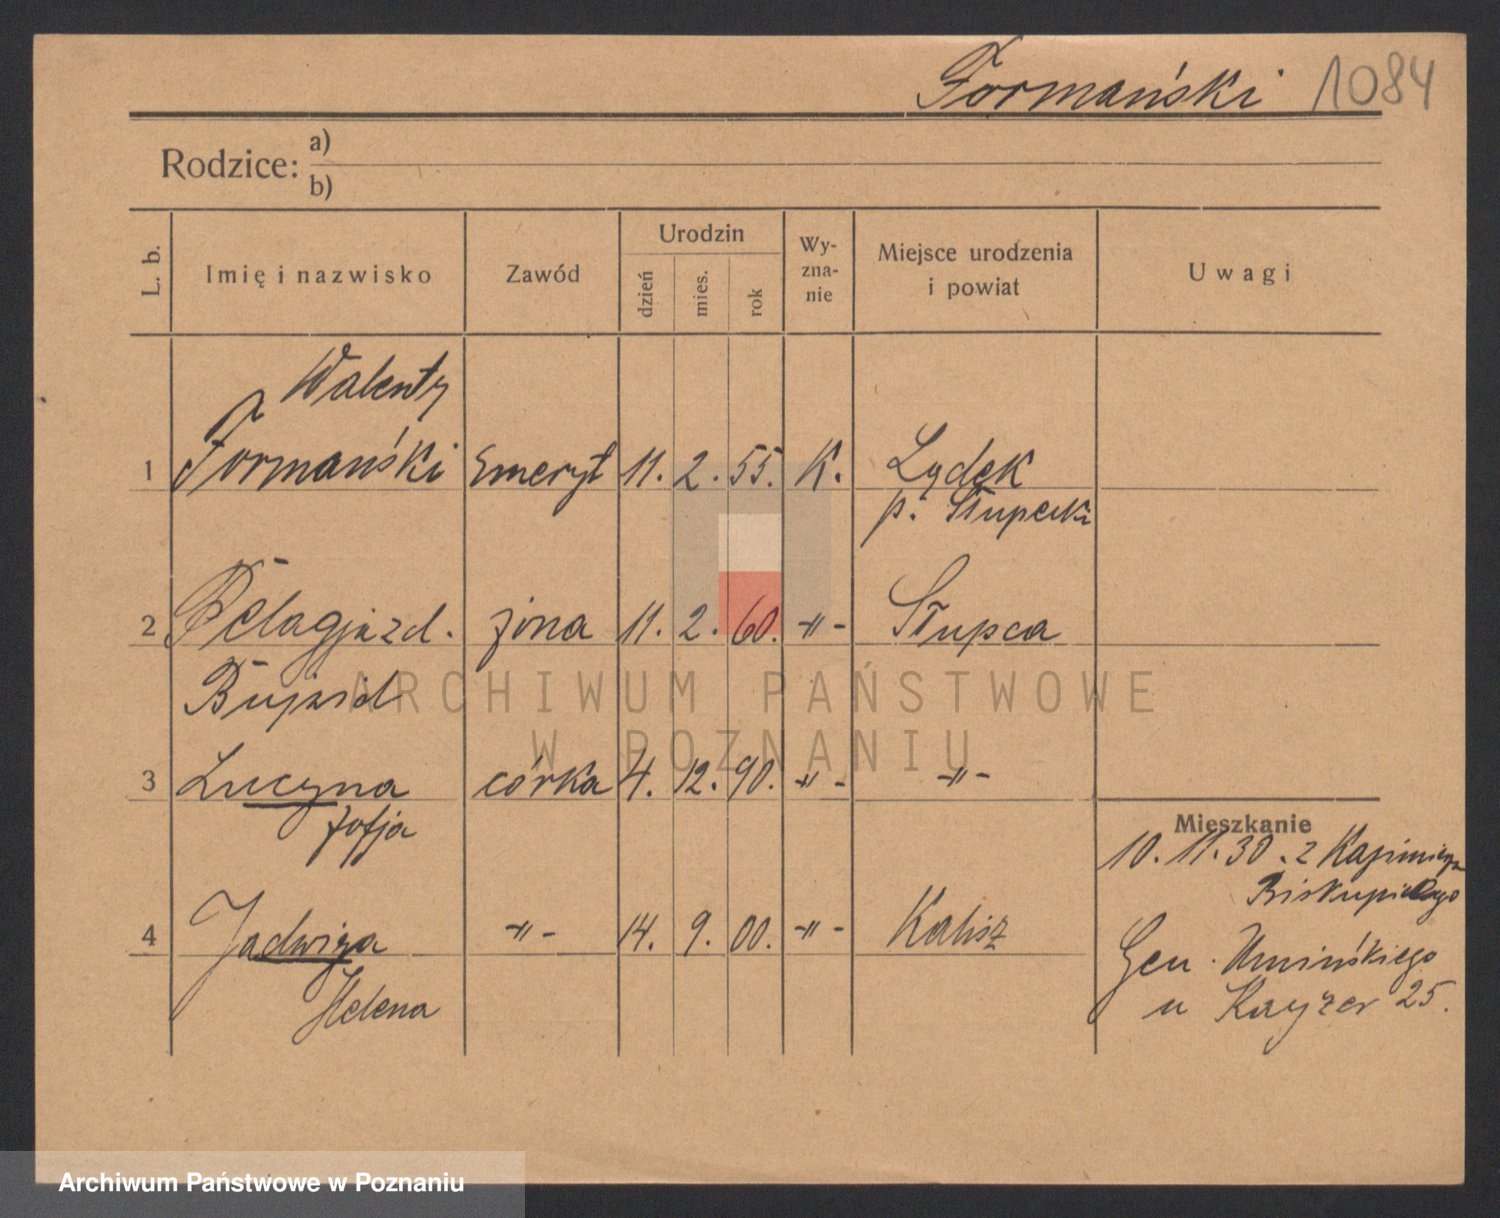 Formański 1084
Rodzice: a)
b)
L. b. Imię i nazwisko Zawód Urodzin dzień mies. rok Wy-zna-nie Miejsce urodzenia i powiat Uwagi
Walenty
1 Formański Emeryt 11. 2. 55. K. Lądek
p. Słupecki
2 Pelagja zd. żona 11. 2. 60. -"- Słupca
Bujzid
3 Lucyna córka 4. 12. 90. -"- -"-
Zofja
Mieszkanie
10. 11. 30. z Kazimierza
Biskupiego
4 Jadwiga -"- 14. 9. 00. -"- Kalisz
Helena
Gen. Umińskiego
u Kayzer 25.
ARCHIWUM PAŃSTWOWE
W POZNANIU
Archiwum Państwowe w Poznaniu